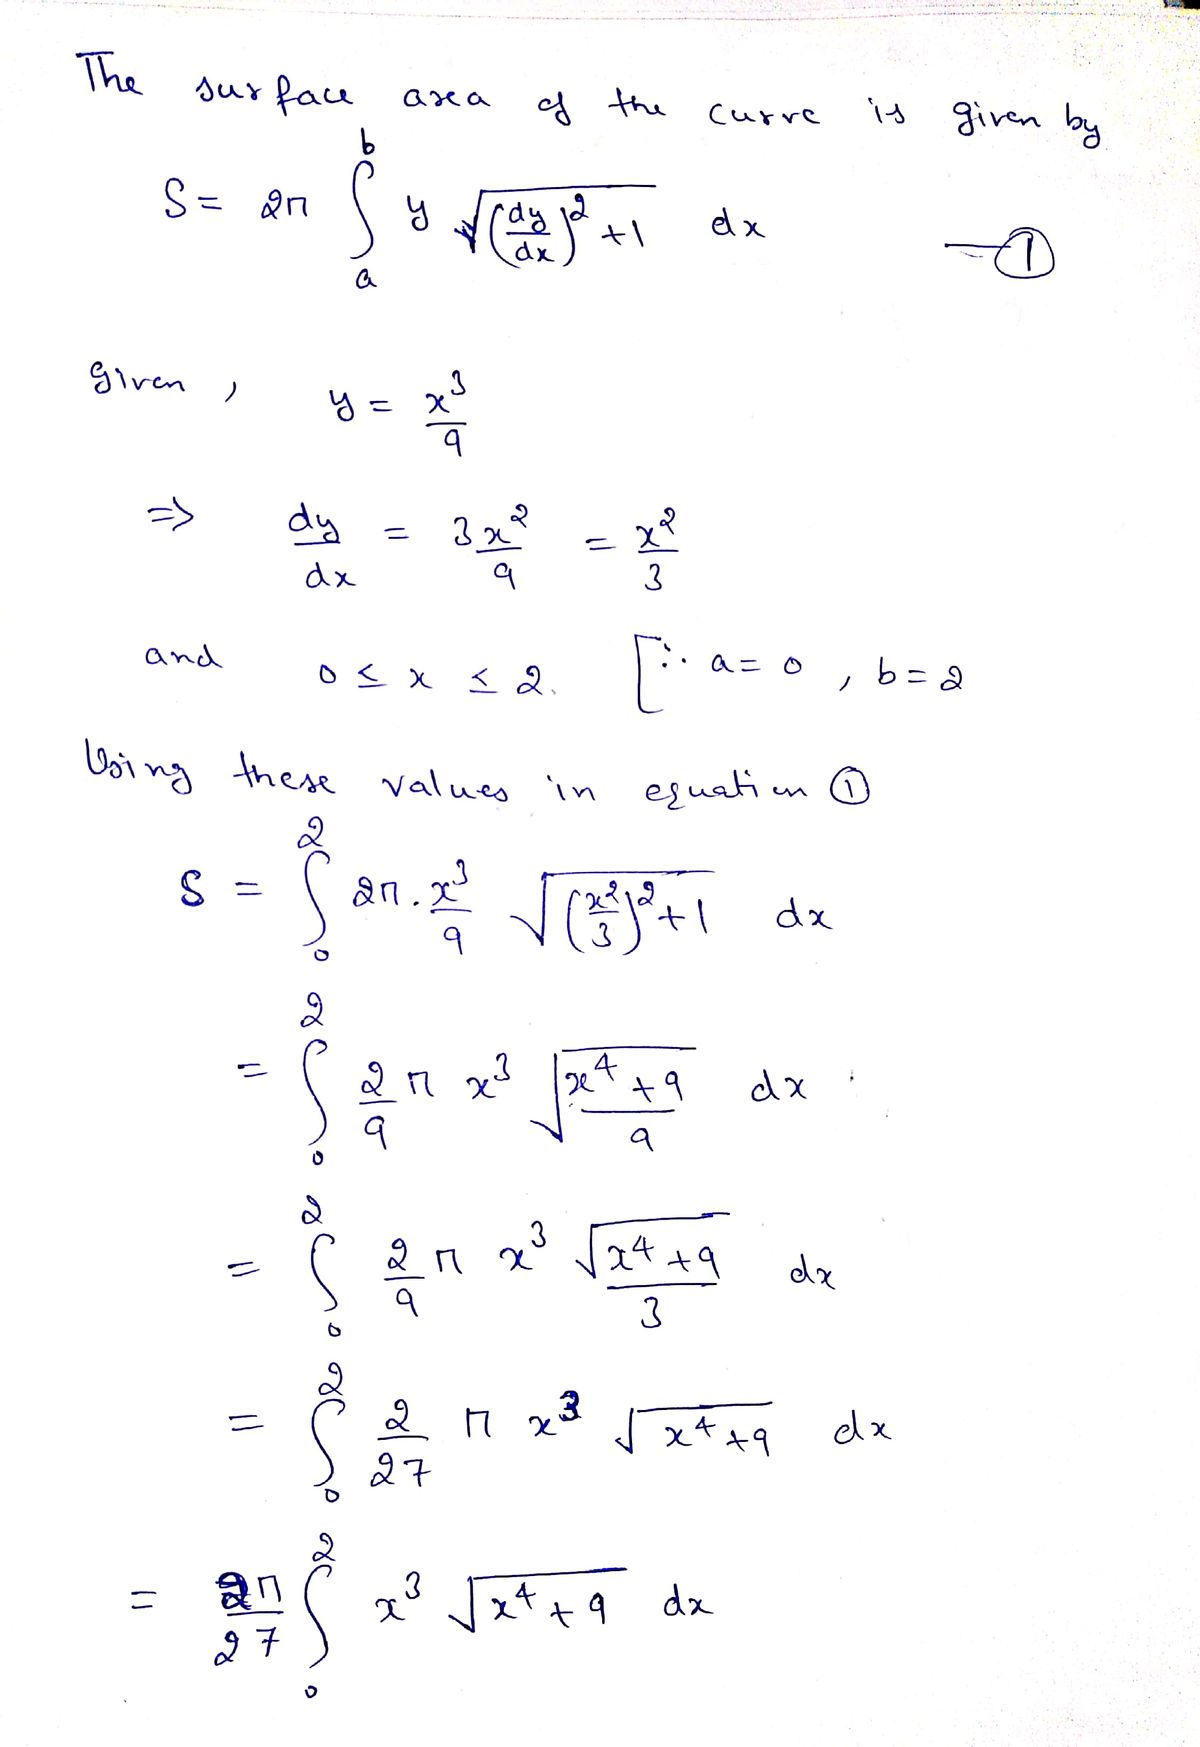 The surface area of the curve is given by
S = 2π ∫_a^b y √((dy/dx)² + 1) dx —①
Given , y = x³/9
=> dy/dx = 3x²/9 = x²/3
and 0 ≤ x ≤ 2. [∵ a = 0 , b = 2
Using these values in equation ①
S = ∫_0^2 2π . x³/9 √((x²/3)² + 1) dx
= ∫_0^2 2/9 π x³ √((x⁴ + 9)/9) dx
= ∫_0^2 2/9 π x³ √(x⁴ + 9)/3 dx
= ∫_0^2 2/27 π x³ √(x⁴ + 9) dx
= 2π/27 ∫_0^2 x³ √(x⁴ + 9) dx